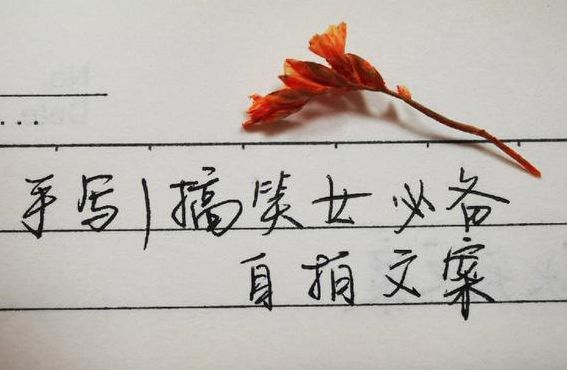 手写|搞笑女必备
自拍文案